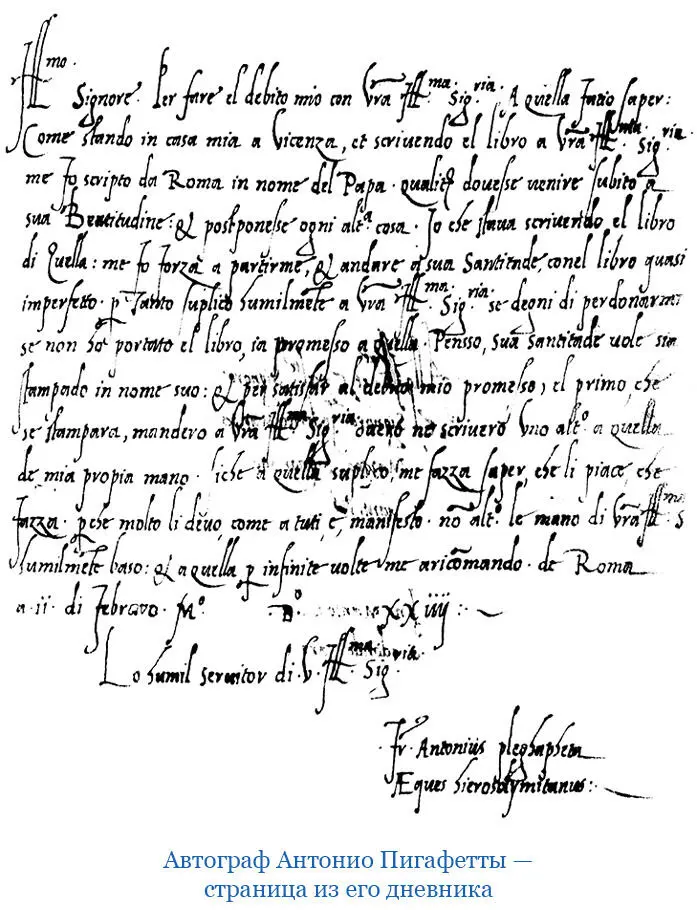 Ill.mo
Signore. Per fare el debito mio con Vra Ill.ma Sig.ria. A quella fatio saper:
Come stando in casa mia a Vicenza, et scrivendo el libro a Vra Ill.ma Sig.ria.
me fo scripto da Roma in nome del Papa. dovesse venire subito a
sua Beatitudine: & postponesse ogni alt.a cosa. Io che stava scrivendo el libro
di Quella: me fo forza a partirme, & andare a sua Santitade, con el libro quasi
imperfetto. p tanto suplico humilmete a Vra Ill.ma Sig.ria. se degni di perdonarmi
se non ho portato el libro, ia promesso a quella. Pensso, sua Santitade vole sia
stampado in nome suo: & per satisfar al debito mio promesso, el primo che
se stampara, mandero a Vra Ill.ma Sig.ria overo ne scrivero uno alt.o a quella
de mia propia mano. liche a quella suplico, me fazza saper, che li piace che
fazza. pche molto li devo, come a tuti e, manifesto. nō alt.o le mano di Vra Ill.ma S
humilmete baso: & a quella p infinite volte me aricōmando. de Roma
a ii. di febravo. M.o D.o XXiiij:
Lo humil servitor di. V. Ill.ma Sig.ria.
Fr.o Antonius pleghapheta
Æques hierosolymitanus:
Автограф Антонио Пигафетты —
страница из его дневника